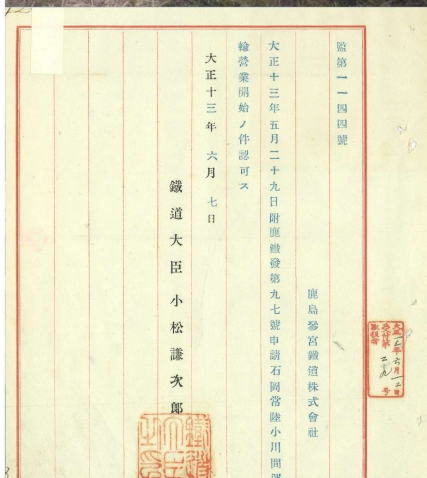 監第一一四四號
鹿島參宮鐵道株式會社
大正十三年五月二十九日附鹿鐵發第九七號申請石岡常陸小川間
輸營業開始ノ件認可ス
大正十三年 六月 七日
鐵道大臣 小松謙次郎
鐵道大臣之印
大正一三年六月一二日
第二九号